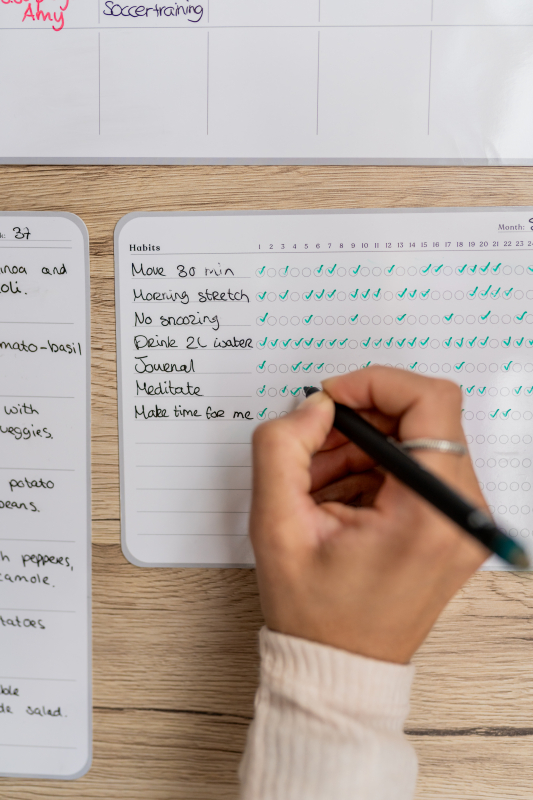 Amy
Soccertraining
37
and
mato-basil
with
veggies.
potato
beans.
peppers,
salad.
Month:
Habits 1 2 3 4 5 6 7 8 9 10 11 12 13 14 15 16 17 18 19 20 21 22 23
Move 30 min
Morning stretch
No snoozing
Drink 2L water
Journal
Meditate
Make time for me